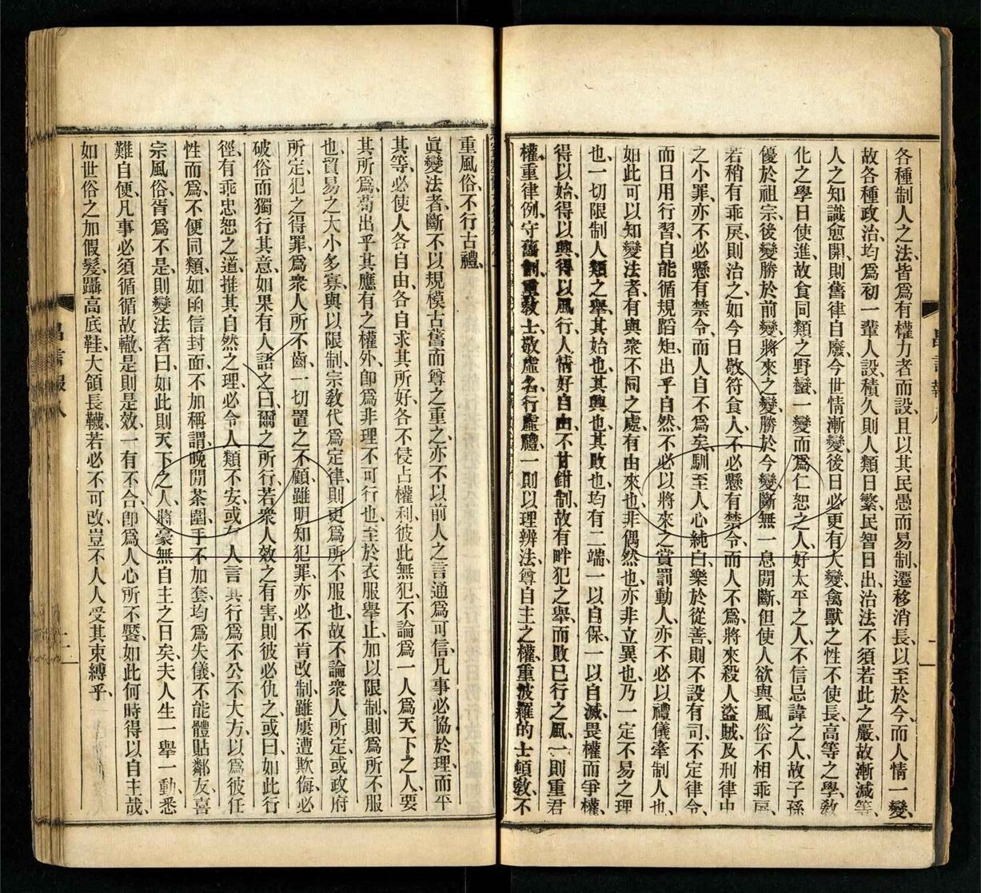 各種制人之法、皆爲有權力者而設、且以其民愚而易制、遷移消長、以至於今、而人情一變、
故各種政治均爲初一輩人設、積久則人類日繁、民智日出、治法不須若此之嚴、故漸減等、
人之知識愈開、則舊律自廢、今世情漸變、後日必更有大變、禽獸之性不使長、高等之學、敎
化之學、日使進、故食同類之野蠻、一變而爲仁恕之人、好太平之人、不信忌諱之人、故子孫
優於祖宗、後變勝於前變、將來之變、勝於今變、斷無一息閒斷、但使人欲與風俗不相乖戾、
若稍有乖戾則治之、如今日敬符食人、不必懸有禁令、而人不爲、將來殺人盜賊及刑律中
之小罪、亦不必懸有禁令、而人自不爲矣、馴至人心純白、樂於從善、則不設有司、不定律令、
而日用行習、自能循規蹈矩、出乎自然、不必以將來之賞罰動人、亦不必以禮儀牽制人也、
如此可以知變法者、有與衆不同之處、有由來也、非偶然也、亦非立異也、乃一定不易之理
也、一切限制人類之舉、其始也、其興也、其敗也、均有二端、一以自保、一以自滅、畏權而爭權、
得以始、得以興、得以風行、人情好自由、不甘鉗制、故有畔犯之舉、而敗已行之風、一則重君
權、重律例、守舊制、重敎士、敬虛名、行虛禮、一則以理辨法、尊自主之權、重波羅的士頓敎、不
重風俗、不行古禮、
眞變法者、斷不以規模古舊而尊之重之、亦不以前人之言通爲可信、凡事必協於理、而平
其等、必使人各自由、各自求其所好、各不侵占權利、彼此無犯、不論爲一人、爲天下之人、要
其所爲、苟出乎其應有之權外、卽爲非理不可行也、至於衣服舉止、加以限制、則爲所不服
也、貿易之大小多寡、與以限制、宗敎代爲定律、則更爲所不服也、故不論衆人所定、或政府
所定、犯之得罪、爲衆人所不齒、一切置之不顧、雖明知犯罪、亦必不肯改制、雖屢遭欺侮、必
破俗而獨行其意、如果有人語之曰、爾之所行、若衆人效之有害、則彼必仇之、或曰、如此行
徑、有乖忠恕之道、推其自然之理、必令人類不安、或有人言其行爲不公不大方、以爲彼任
性而爲、不便同類、如函信封面不加稱謂、晚閒茶圍手不加套、均爲失儀、不能體貼鄰友、喜
宗風俗、胥爲不是、則變法者曰、如此則天下之人、將毫無自主之日矣、夫人生一舉一動、悉
難自便、凡事必須循循故轍、是則是效、一有不合、卽爲人心所不饜、如此何時得以自主哉、
如世俗之加假髮、躡高底鞋、大領長襪、若必不可改、豈不人人受其束縛乎、
昌言報八